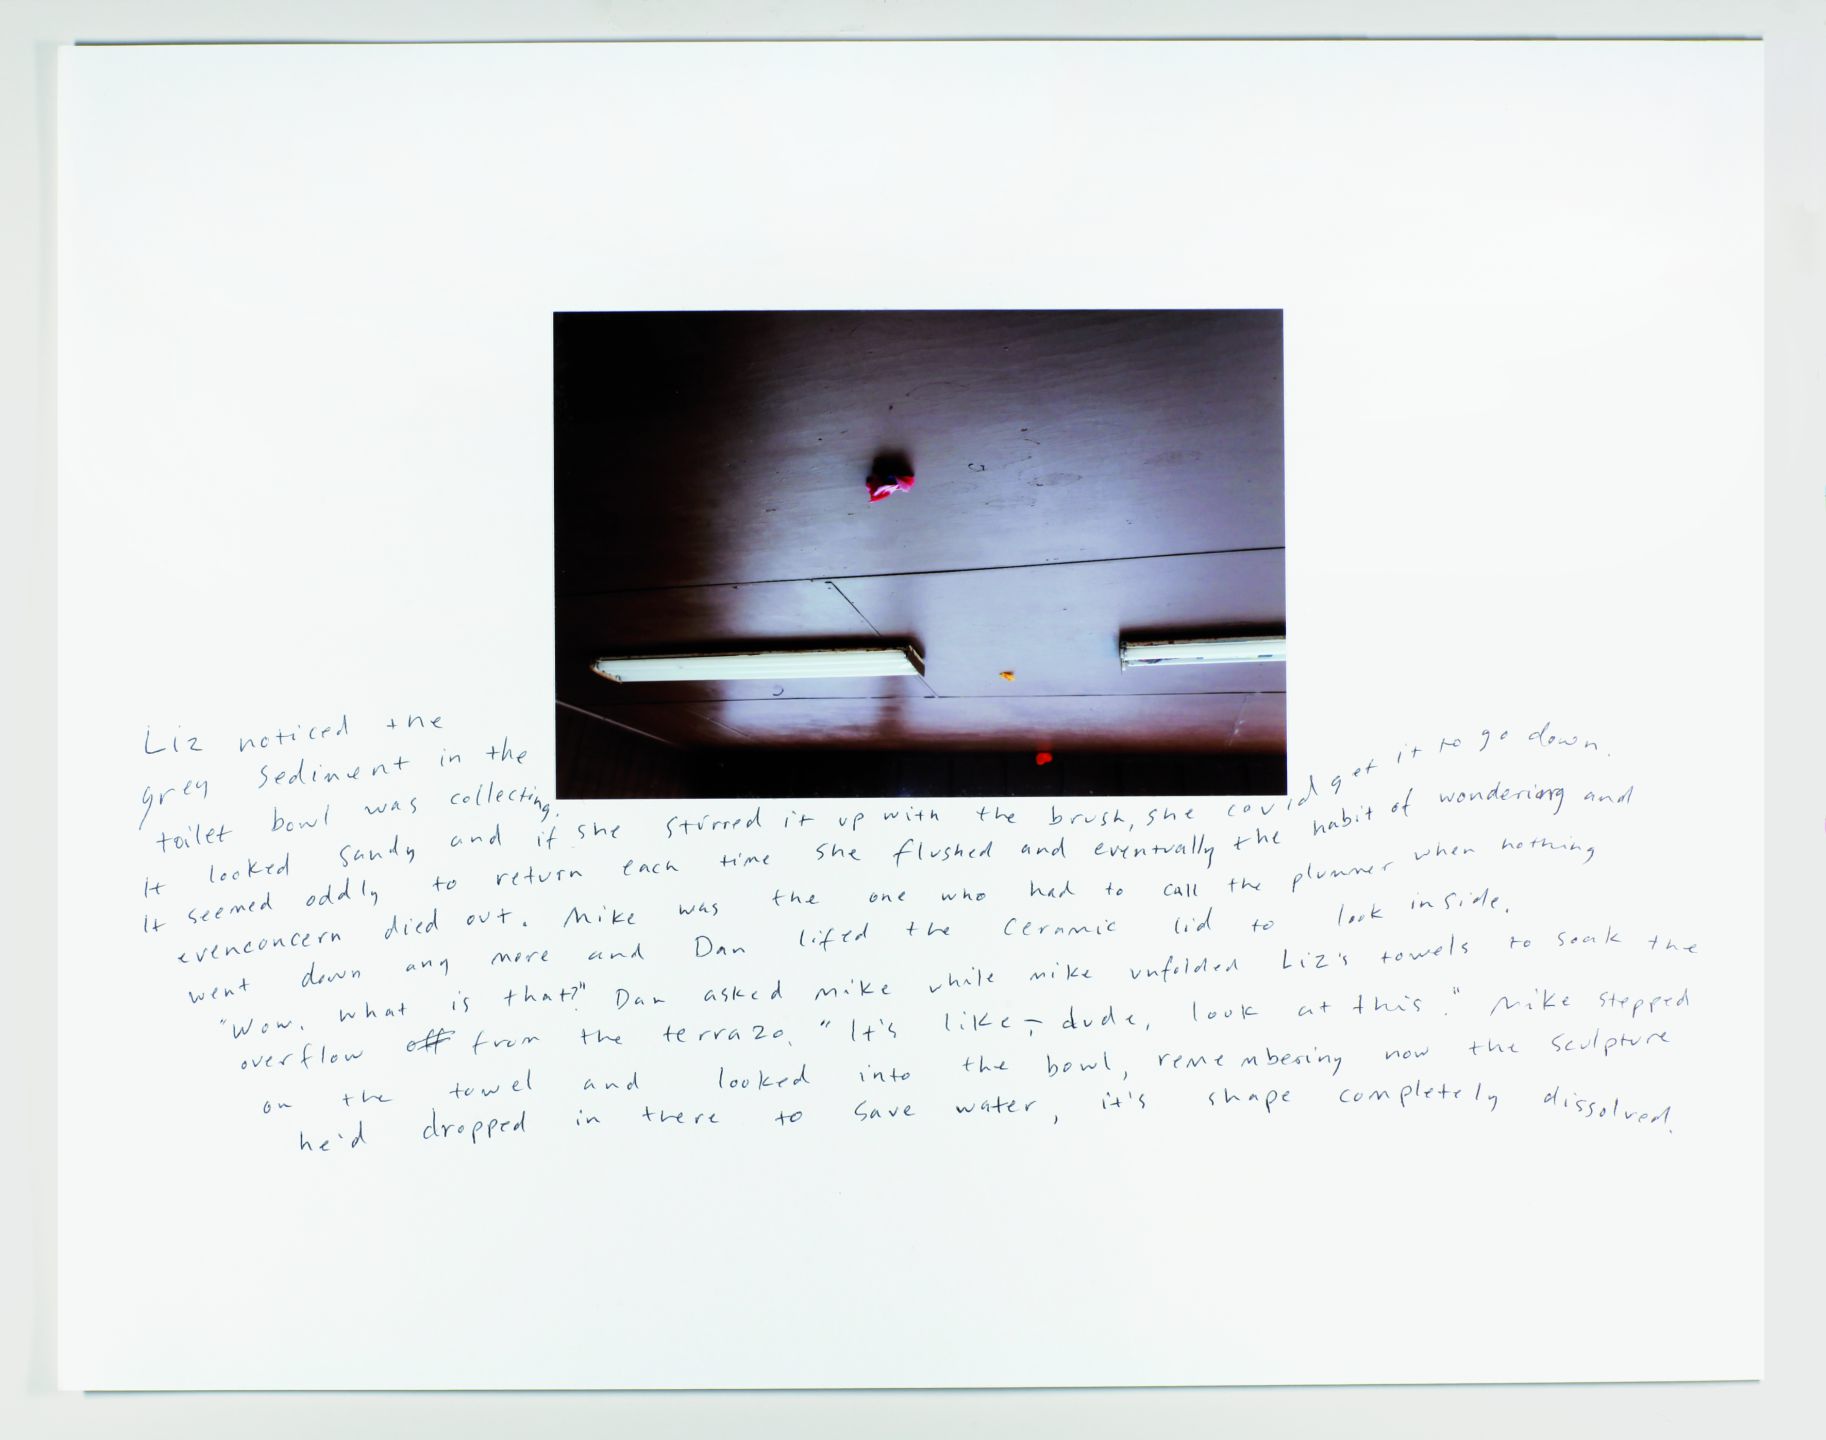 Liz noticed the
grey sediment in the
toilet bowl was collecting.
It looked sandy and if she stirred it up with the brush, she could get it to go down.
It seemed oddly to return each time she flushed and eventually the habit of wondering and
evenconcern died out. Mike was the one who had to call the plummer when nothing
went down any more and Dan lifted the ceramic lid to look inside.
"Wow. What is that?" Dan asked Mike while Mike unfolded Liz's towels to soak the
overflow off from the terrazo. "It's like, dude, look at this." Mike stepped
on the towel and looked into the bowl, remembering now the sculpture
he'd dropped in there to save water, it's shape completely dissolved.